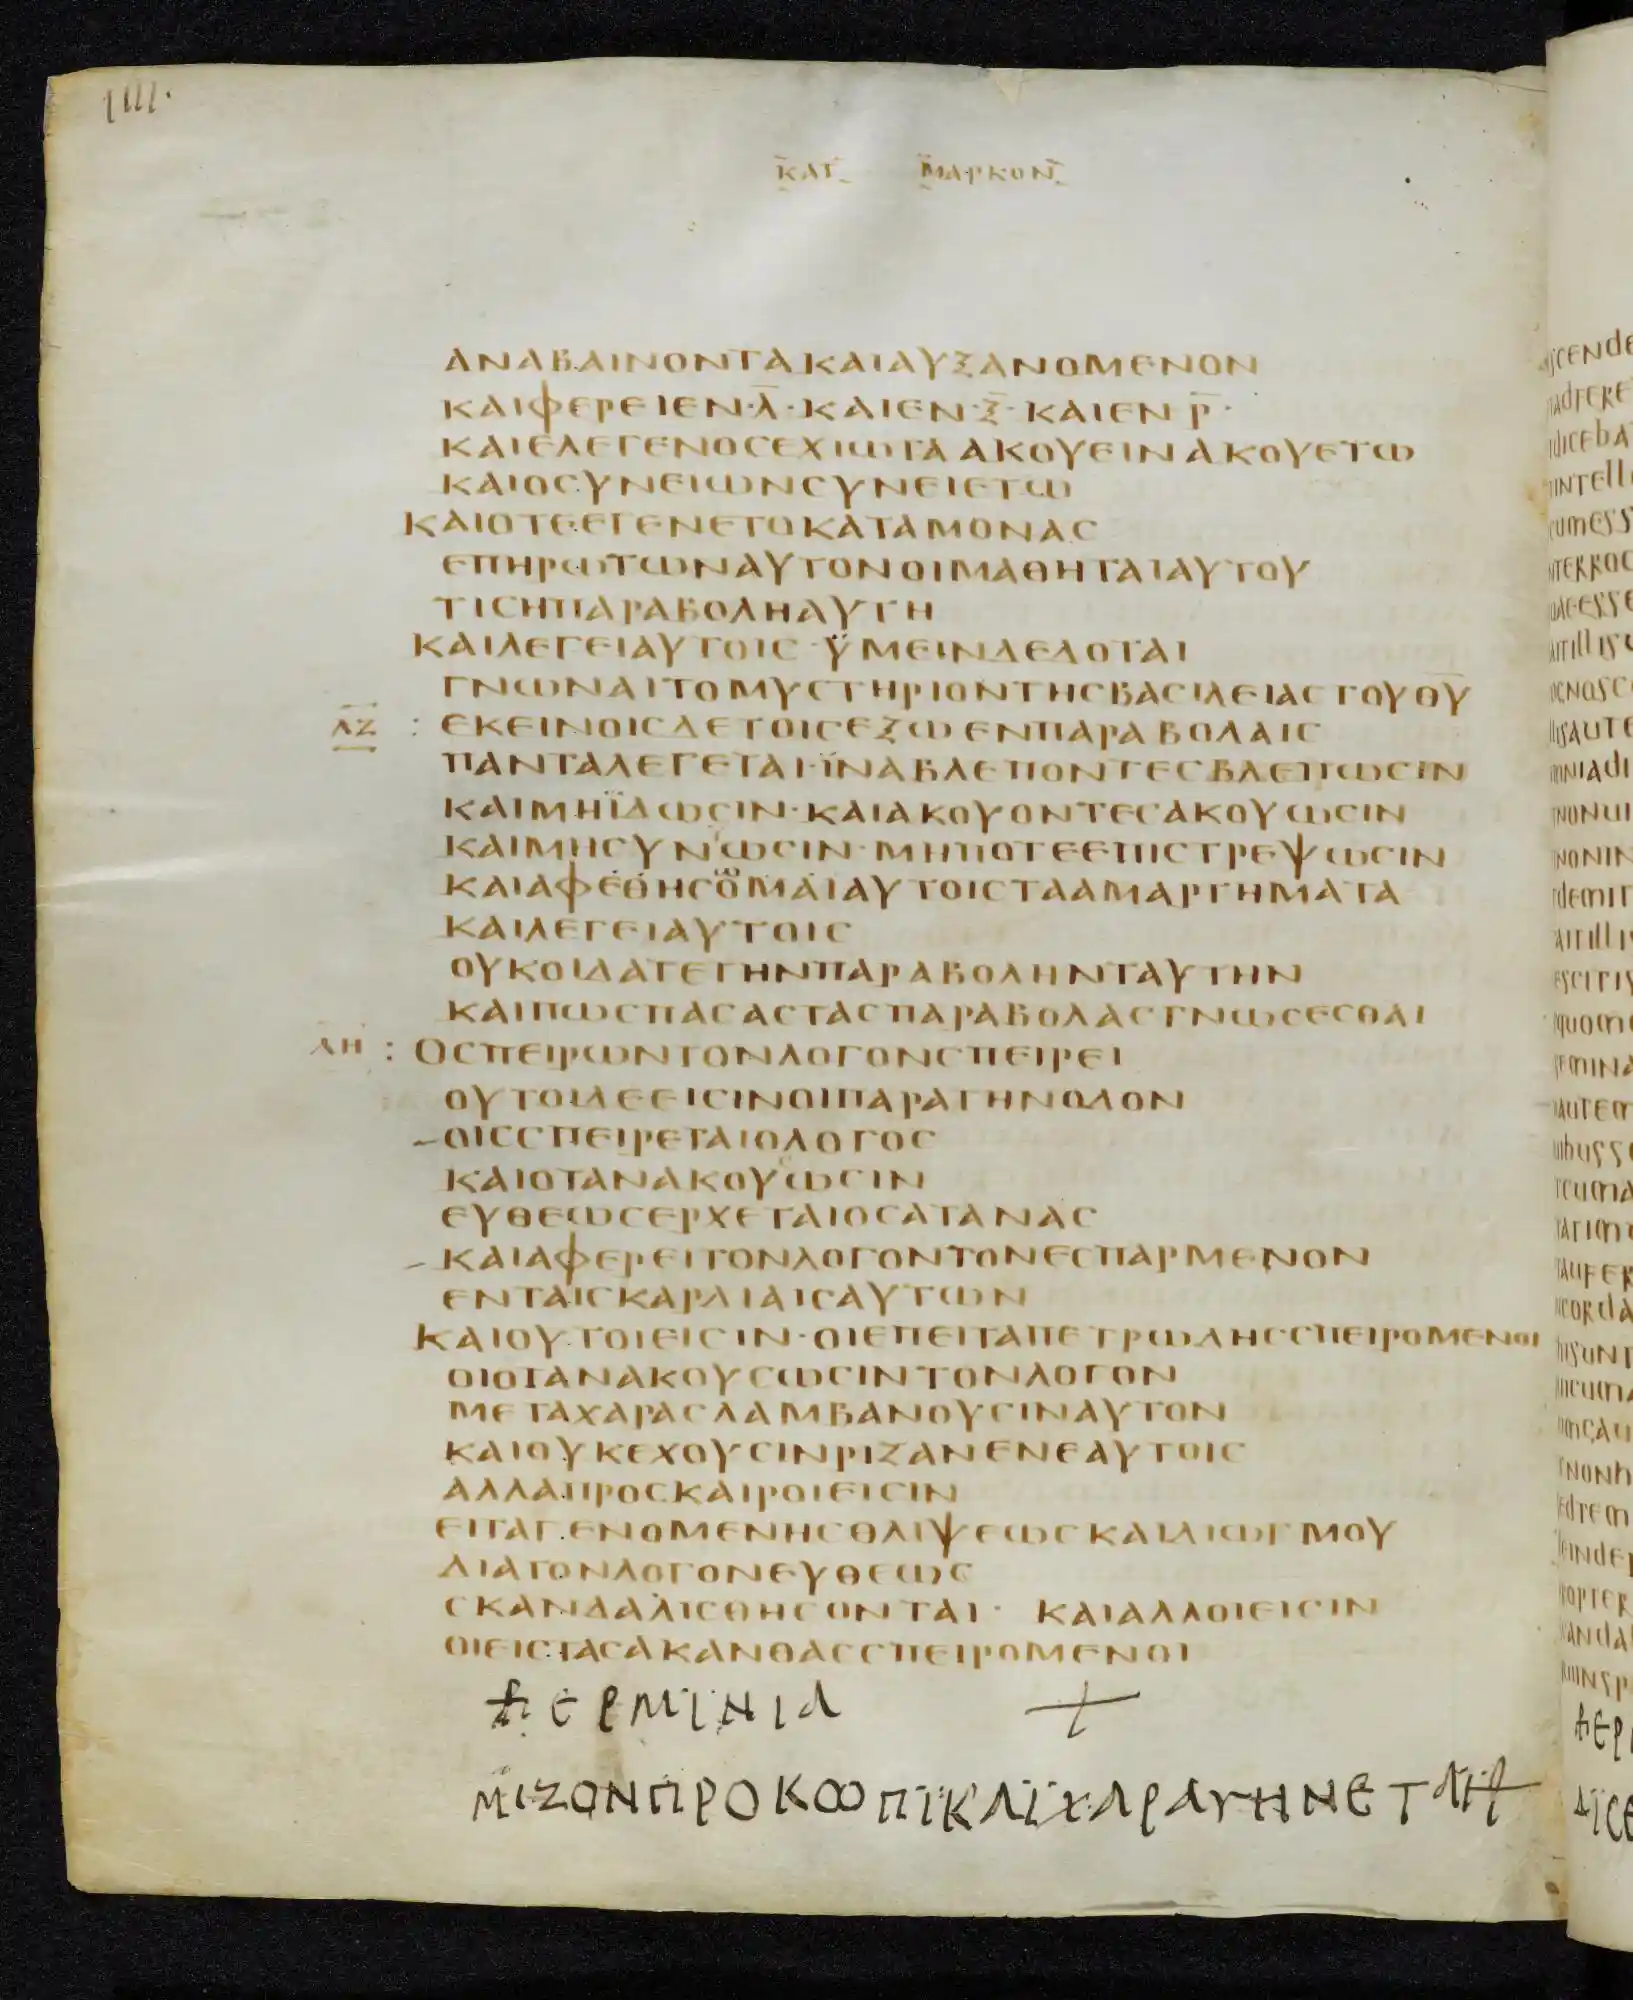 ΚΑΤ ΜΑΡΚΟΝ
ΑΝΑΒΑΙΝΟΝΤΑΚΑΙΑΥΞΑΝΟΜΕΝΟΝ
ΚΑΙΦΕΡΕΙΕΝ·Λ̅·ΚΑΙΕΝ·Ξ̅·ΚΑΙΕΝ Ρ̅·
ΚΑΙΕΛΕΓΕΝΟϹΕΧΙΩΤΑΑΚΟΥΕΙΝΑΚΟΥΕΤΩ
ΚΑΙΟϹΥΝΕΙΩΝϹΥΝΕΙΕΤΩ
ΚΑΙΟΤΕΕΓΕΝΕΤΟΚΑΤΑΜΟΝΑϹ
ΕΠΗΡΩΤΩΝΑΥΤΟΝΟΙΜΑΘΗΤΑΙΑΥΤΟΥ
ΤΙϹΗΠΑΡΑΒΟΛΗΑΥΤΗ
ΚΑΙΛΕΓΕΙΑΥΤΟΙϹ·ΫΜΕΙΝΔΕΔΟΤΑΙ
ΓΝΩΝΑΙΤΟΜΥϹΤΗΡΙΟΝΤΗϹΒΑϹΙΛΕΙΑϹΤΟΥΘ̅Υ̅
Λ̅Ζ̅ : ΕΚΕΙΝΟΙϹΔΕΤΟΙϹΕΞΩΕΝΠΑΡΑΒΟΛΑΙϹ
ΠΑΝΤΑΛΕΓΕΤΑΙ·ΪΝΑΒΛΕΠΟΝΤΕϹΒΛΕΠΩϹΙΝ
ΚΑΙΜΗΪΔΩϹΙΝ·ΚΑΙΑΚΟΥΟΝΤΕϹΑΚΟΥΩϹΙΝ
ΚΑΙΜΗϹΥΝΩϹΙΝ·ΜΗΠΟΤΕΕΠΙϹΤΡΕΨΩϹΙΝ
ΚΑΙΑΦΕΘΗϹΟΜΑΙΑΥΤΟΙϹΤΑΑΜΑΡΤΗΜΑΤΑ
ΚΑΙΛΕΓΕΙΑΥΤΟΙϹ
ΟΥΚΟΙΔΑΤΕΤΗΝΠΑΡΑΒΟΛΗΝΤΑΥΤΗΝ
ΚΑΙΠΩϹΠΑϹΑϹΤΑϹΠΑΡΑΒΟΛΑϹΓΝΩϹΕϹΘΑΙ
Λ̅Η̅ : ΟϹΠΕΙΡΩΝΤΟΝΛΟΓΟΝϹΠΕΙΡΕΙ
ΟΥΤΟΙΔΕΕΙϹΙΝΟΙΠΑΡΑΤΗΝΟΔΟΝ
ΟΙϹϹΠΕΙΡΕΤΑΙΟΛΟΓΟϹ
ΚΑΙΟΤΑΝΑΚΟΥΩϹΙΝ
ΕΥΘΕΩϹΕΡΧΕΤΑΙΟϹΑΤΑΝΑϹ
ΚΑΙΑΦΕΡΕΙΤΟΝΛΟΓΟΝΤΟΝΕϹΠΑΡΜΕΝΟΝ
ΕΝΤΑΙϹΚΑΡΔΙΑΙϹΑΥΤΩΝ
ΚΑΙΟΥΤΟΙΕΙϹΙΝ·ΟΙΕΠΕΙΤΑΠΕΤΡΩΔΗϹϹΠΕΙΡΟΜΕΝΟΙ
ΟΙΟΤΑΝΑΚΟΥϹΩϹΙΝΤΟΝΛΟΓΟΝ
ΜΕΤΑΧΑΡΑϹΛΑΜΒΑΝΟΥϹΙΝΑΥΤΟΝ
ΚΑΙΟΥΚΕΧΟΥϹΙΝΡΙΖΑΝΕΝΕΑΥΤΟΙϹ
ΑΛΛΑΠΡΟϹΚΑΙΡΟΙΕΙϹΙΝ
ΕΙΤΑΓΕΝΟΜΕΝΗϹΘΛΙΨΕΩϹΚΑΙΔΙΩΓΜΟΥ
ΔΙΑΤΟΝΛΟΓΟΝΕΥΘΕΩϹ
ϹΚΑΝΔΑΛΙϹΘΗϹΟΝΤΑΙ· ΚΑΙΑΛΛΟΙΕΙϹΙΝ
ΟΙΕΙϹΤΑϹΑΚΑΝΘΑϹϹΠΕΙΡΟΜΕΝΟΙ
ΕΡΜΙΝΙΑ +
ΜΙΖΟΝΠΡΟΚΟΟΠΙΚΑΙΧΑΡΑΥΗΝΕΤΑΗ